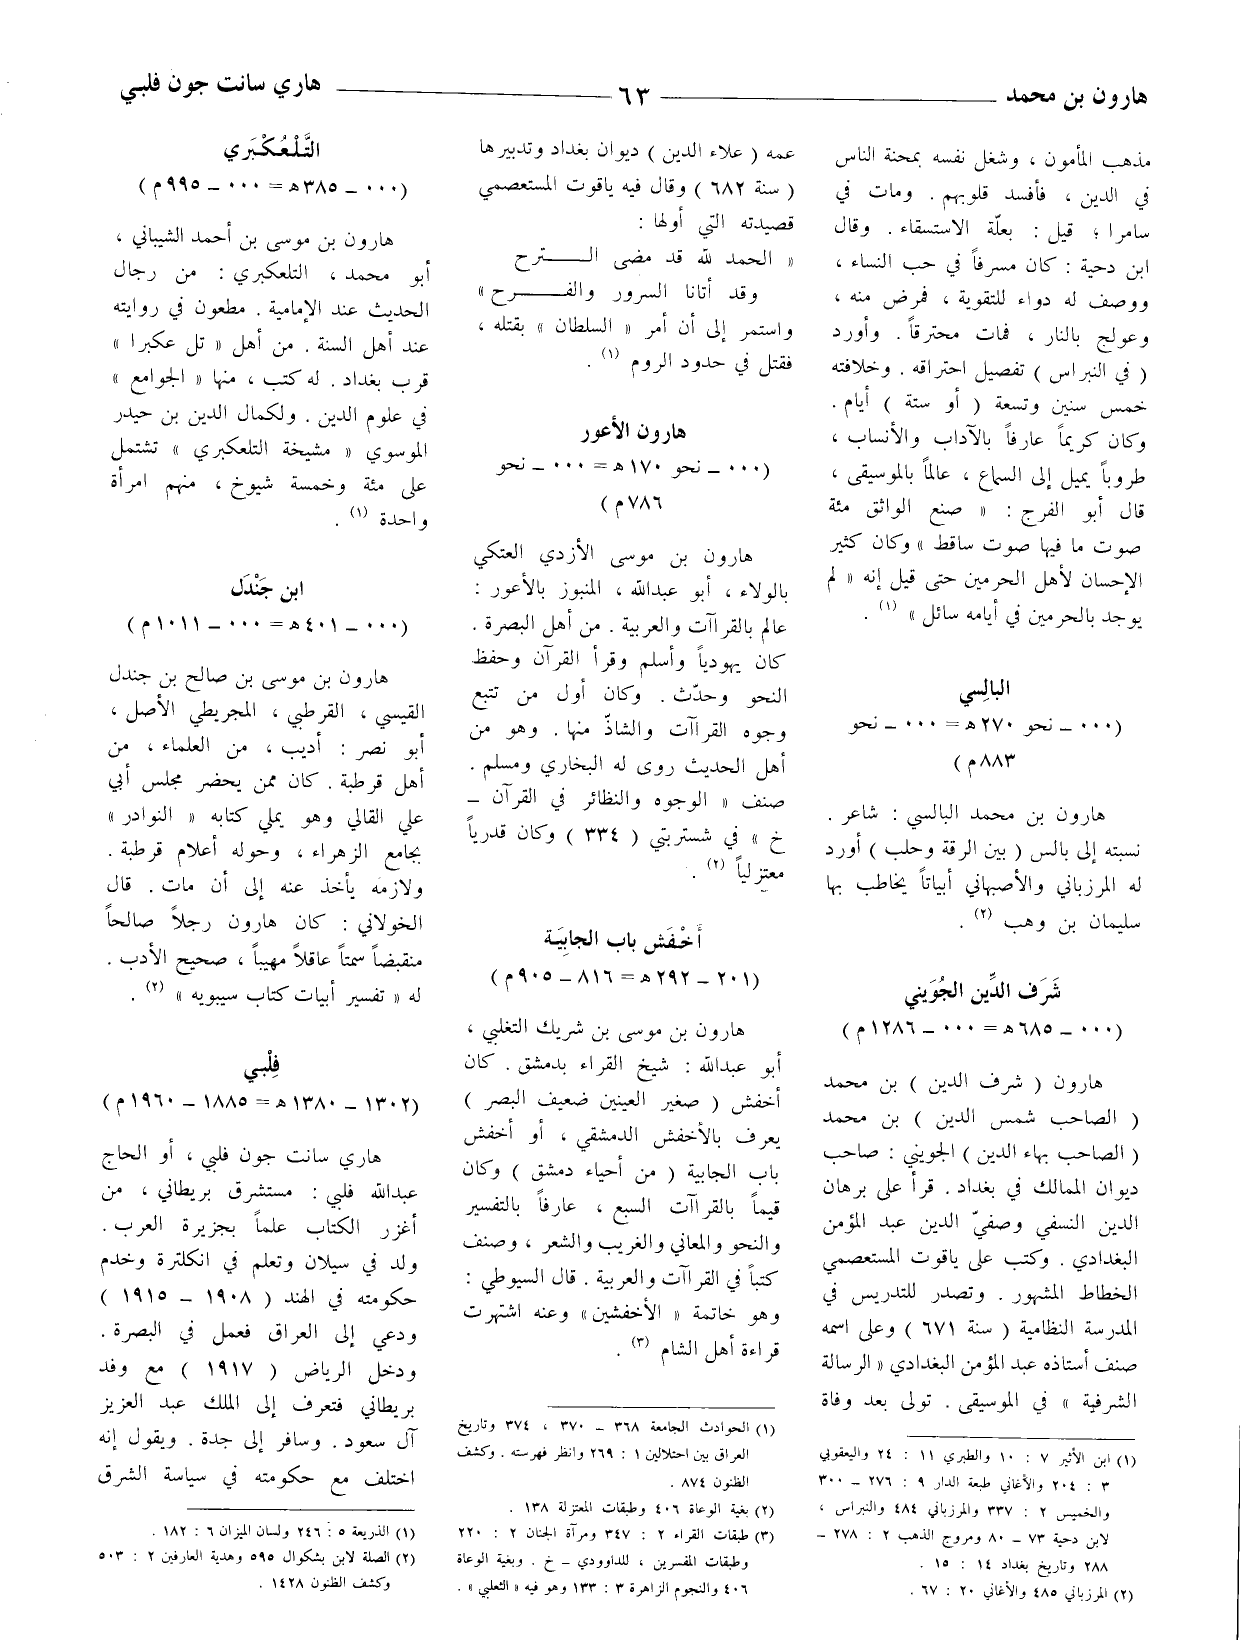 هارون بن محمد
٦٣
هاري سانت جون فلبي
مذهب المأمون ، وشغل نفسه بمحنة الناس
في الدين ، فأفسد قلوبهم . ومات في
سامرا ؛ قيل : بعلّة الاستسقاء . وقال
ابن دحية : كان مسرفاً في حب النساء ،
ووصف له دواء للتقوية ، فمرض منه ،
وعولج بالنار ، فمات محترقاً . وأورد
( في النبراس ) تفصيل احتراقه . وخلافته
خمس سنين وتسعة ( أو ستة ) أيام .
وكان كريماً عارفاً بالآداب والأنساب ،
طروباً يميل إلى السماع ، عالماً بالموسيقى ،
قال أبو الفرج : « صنع الواثق مئة
صوت ما فيها صوت ساقط » وكان كثير
الإحسان لأهل الحرمين حتى قيل إنه « لم
يوجد بالحرمين في أيامه سائل » (١) .
البالِسي
(٠٠٠ – نحو ٢٧٠ ه = ٠٠٠ – نحو
٨٨٣ م )
هارون بن محمد البالسي : شاعر .
نسبته إلى بالس ( بين الرقة وحلب ) أورد
له المرزباني والأصبهاني أبياتاً يخاطب بها
سليمان بن وهب (٢) .
شَرَف الدِّين الجُوَيني
(٠٠٠ – ٦٨٥ ه = ٠٠٠ – ١٢٨٦ م )
هارون ( شرف الدين ) بن محمد
( الصاحب شمس الدين ) بن محمد
( الصاحب بهاء الدين ) الجويني : صاحب
ديوان الممالك في بغداد . قرأ على برهان
الدين النسفي وصفيّ الدين عبد المؤمن
البغدادي . وكتب على ياقوت المستعصمي
الخطاط المشهور . وتصدر للتدريس في
المدرسة النظامية ( سنة ٦٧١ ) وعلى اسمه
صنف أستاذه عبد المؤمن البغدادي « الرسالة
الشرفية » في الموسيقى . تولى بعد وفاة
(١) ابن الأثير ٧ : ١٠ والطبري ١١ : ٢٤ واليعقوبي
٣ : ٢٠٤ والأغاني طبعة الدار ٩ : ٢٧٦ – ٣٠٠
والخميس ٢ : ٣٣٧ والمرزباني ٤٨٤ والنبراس ،
لابن دحية ٧٣ – ٨٠ ومروج الذهب ٢ : ٢٧٨ –
٢٨٨ وتاريخ بغداد ١٤ : ١٥ .
(٢) المرزباني ٤٨٥ والأغاني ٢٠ : ٦٧ .
عمه ( علاء الدين ) ديوان بغداد وتدبيرها
( سنة ٦٨٢ ) وقال فيه ياقوت المستعصمي
قصيدته التي أولها :
« الحمد لله قد مضى الـــترح
وقد أتانا السرور والفـــرح »
واستمر إلى أن أمر « السلطان » بقتله ،
فقتل في حدود الروم (١) .
هارون الأعور
(٠٠٠ – نحو ١٧٠ ه = ٠٠٠ – نحو
٧٨٦ م )
هارون بن موسى الأزدي العتكي
بالولاء ، أبو عبدالله ، المنبوز بالأعور :
عالم بالقراآت والعربية . من أهل البصرة .
كان يهودياً وأسلم وقرأ القرآن وحفظ
النحو وحدّث . وكان أول من تتبع
وجوه القراآت والشاذّ منها . وهو من
أهل الحديث روى له البخاري ومسلم .
صنف « الوجوه والنظائر في القرآن –
خ » في شستربتي ( ٣٣٤ ) وكان قدرياً
معتزلياً (٢) .
أخْفَش باب الجابِيَة
(٢٠١ – ٢٩٢ ه = ٨١٦ – ٩٠٥ م )
هارون بن موسى بن شريك التغلبي ،
أبو عبدالله : شيخ القراء بدمشق . كان
أخفش ( صغير العينين ضعيف البصر )
يعرف بالأخفش الدمشقي ، أو أخفش
باب الجابية ( من أحياء دمشق ) وكان
قيماً بالقراآت السبع ، عارفاً بالتفسير
والنحو والمعاني والغريب والشعر ، وصنف
كتباً في القراآت والعربية . قال السيوطي :
وهو خاتمة « الأخفشين » وعنه اشتهرت
قراءة أهل الشام (٣) .
(١) الحوادث الجامعة ٣٦٨ – ٣٧٠ ، ٣٧٤ وتاريخ
العراق بين احتلالين ١ : ٢٦٩ وانظر فهرسته . وكشف
الظنون ٨٧٤ .
(٢) بغية الوعاة ٤٠٦ وطبقات المعتزلة ١٣٨ .
(٣) طبقات القراء ٢ : ٣٤٧ ومرآة الجنان ٢ : ٢٢٠
وطبقات المفسرين ، للداوودي – خ . وبغية الوعاة
٤٠٦ والنجوم الزاهرة ٣ : ١٣٣ وهو فيه « الثعلبي » .
التَّلْعُكْبَري
(٠٠٠ – ٣٨٥ ه = ٠٠٠ – ٩٩٥ م )
هارون بن موسى بن أحمد الشيباني ،
أبو محمد ، التلعكبري : من رجال
الحديث عند الإمامية . مطعون في روايته
عند أهل السنة . من أهل « تل عكبرا »
قرب بغداد . له كتب ، منها « الجوامع »
في علوم الدين . ولكمال الدين بن حيدر
الموسوي « مشيخة التلعكبري » تشتمل
على مئة وخمسة شيوخ ، منهم امرأة
واحدة (١) .
ابن جَنْدَل
(٠٠٠ – ٤٠١ ه = ٠٠٠ – ١٠١١ م )
هارون بن موسى بن صالح بن جندل
القيسي ، القرطبي ، المجريطي الأصل ،
أبو نصر : أديب ، من العلماء ، من
أهل قرطبة . كان ممن يحضر مجلس أبي
علي القالي وهو يملي كتابه « النوادر »
بجامع الزهراء ، وحوله أعلام قرطبة .
ولازمه يأخذ عنه إلى أن مات . قال
الخولاني : كان هارون رجلاً صالحاً
منقبضاً سمتاً عاقلاً مهيباً ، صحيح الأدب .
له « تفسير أبيات كتاب سيبويه » (٢) .
فِلْبي
(١٣٠٢ – ١٣٨٠ ه = ١٨٨٥ – ١٩٦٠ م )
هاري سانت جون فلبي ، أو الحاج
عبدالله فلبي : مستشرق بريطاني ، من
أغزر الكتاب علماً بجزيرة العرب .
ولد في سيلان وتعلم في انكلترة وخدم
حكومته في الهند ( ١٩٠٨ – ١٩١٥ )
ودعي إلى العراق فعمل في البصرة .
ودخل الرياض ( ١٩١٧ ) مع وفد
بريطاني فتعرف إلى الملك عبد العزيز
آل سعود . وسافر إلى جدة . ويقول إنه
اختلف مع حكومته في سياسة الشرق
(١) الذريعة ٥ : ٢٤٦ ولسان الميزان ٦ : ١٨٢ .
(٢) الصلة لابن بشكوال ٥٩٥ وهدية العارفين ٢ : ٥٠٣
وكشف الظنون ١٤٢٨ .